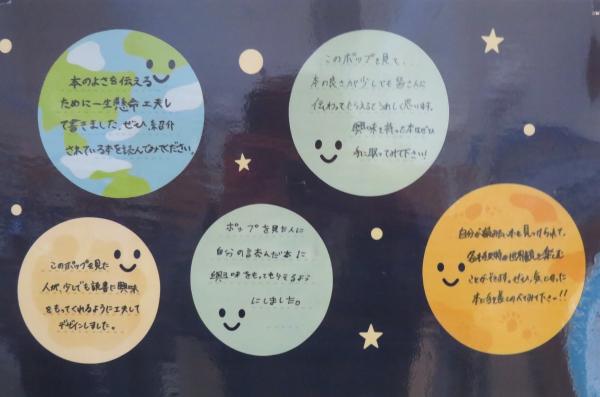 本のよさを伝える
ために一生懸命工夫し
て書きました。ぜひ、紹介
されている本を読んでみてください。
このポップを見て、...
本の良さが少しでも皆さんに
伝わってもらえるとうれしく思います。
興味を持った本はぜひ
手に取ってみて下さい!
このポップを見た
人が、少しでも読書に興味
をもってくれるように工夫して
デザインしました。
ポップを見た人に
自分の読んだ本に
興味をもってもらえるよう
にしました。
自分が読みたい本を見つけられて、
世界観を楽しむ
ことができます。ぜひ、気になった
本に手を差しのべてみて下さい!!